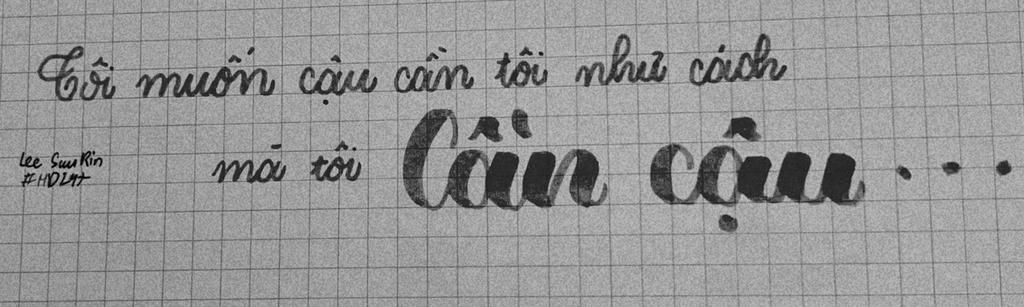 Tôi muốn cậu cần tôi như cách
mà tôi Cần cậu...
Lee Suu Rin
#HDL47